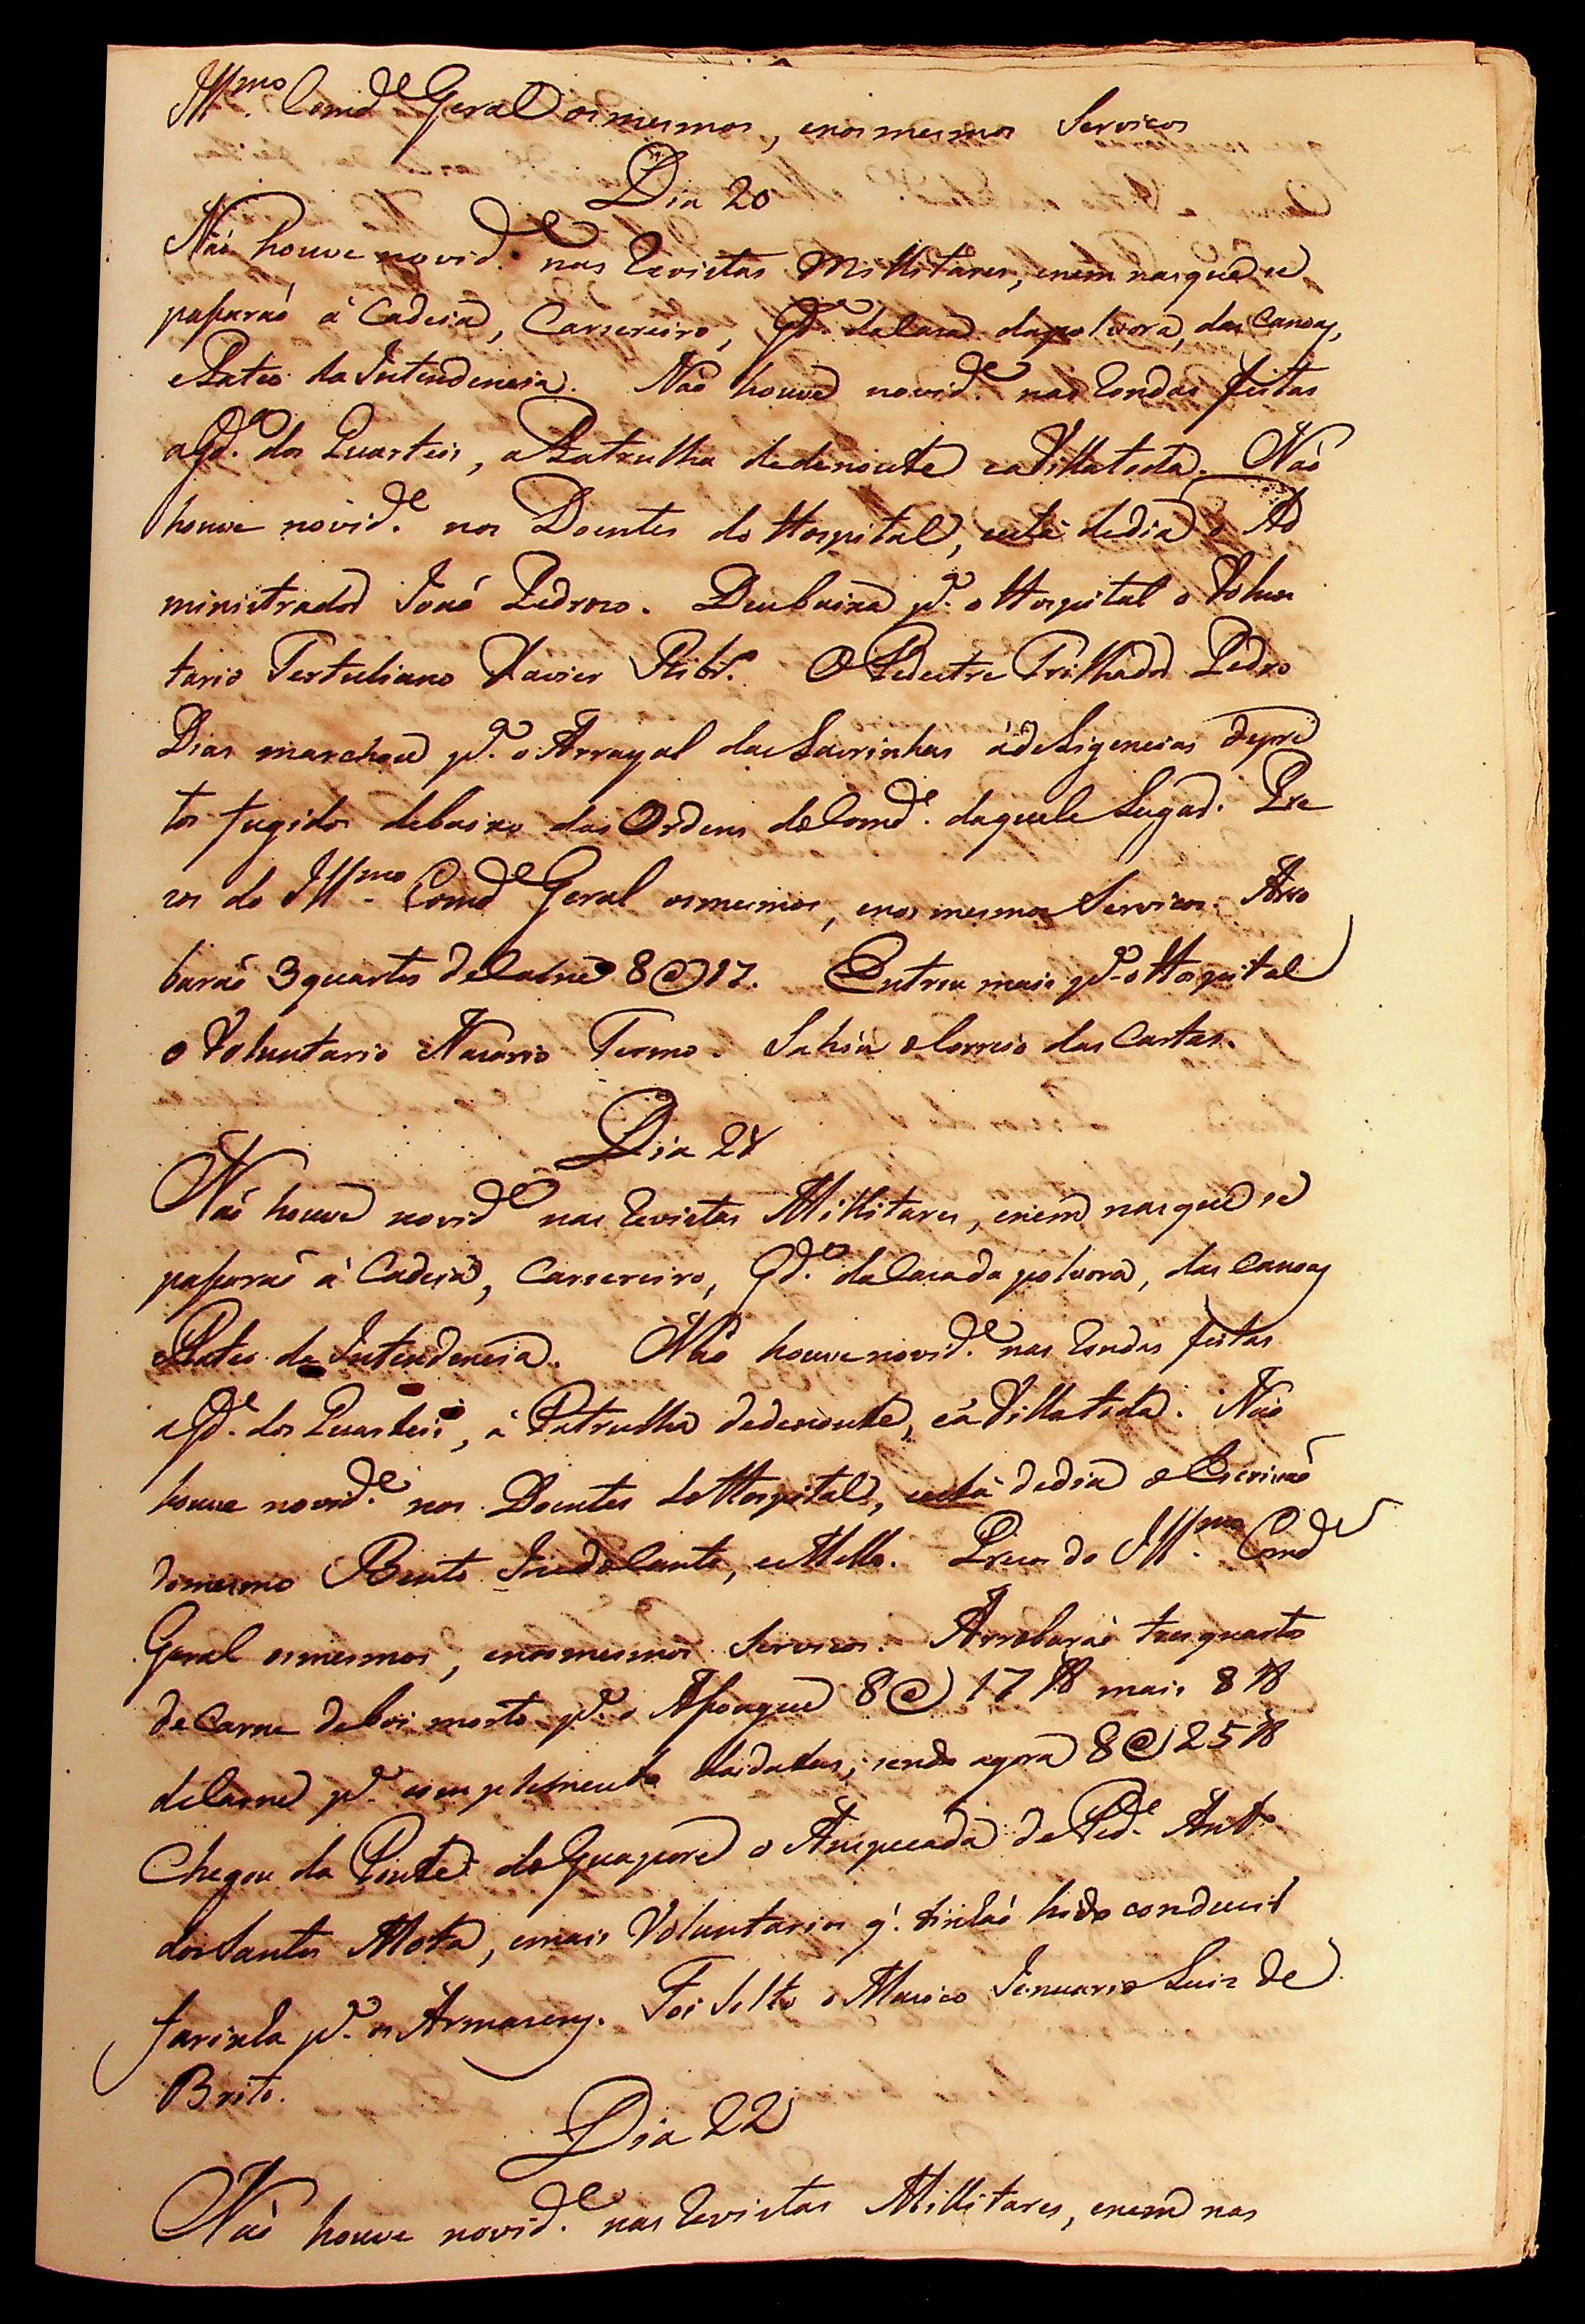 Ill.mo Comd.e Geral os mesmos, enos mesmos Servicos
Dia 20
Não houve novid.e nas Revistas Millitares, enem nasque se
passarão á Cadeia, Carsereiro, Gd.a da Casa da polvora, das Canoas,
e Pateo da Intendencia. Não houve novid.e nas Rondas feitas
a Gd.a dos Quarteis, a Patrulha dedenoute ea Villa toda. Não
houve novid.e nos Doentes do Hospital, esta dedia o Ad
ministrador José Pedroso. Deu baixa p.a o Hospital o Volun
tario Tertuliano Xavier Ribr.o O Pedestre Trilhador Pedro
Dias marchou p.a o Arrayal das Lavrinhas ádeligencias depre
tos fugidos debaixo das Ordens do Comd.e daquele Lugar. Pre
zos do Ill.mo Comd.e Geral os mesmos, enos mesmos Servicos. Arro
barão 3 quartos de Carne 8@17. Entrou mais p.a o Hospital
o Voluntario Termo. Sahiu o Correio das Cartas.
Dia 21
Não houve novid.e nas Revistas Millitares, enem nasque se
passarão á Cadeia, Carsereiro, Gd.a da Casa da polvora, das Canoas
e Pateo da Intendencia. Não houve novid.e nas Rondas feitas
a Gd.a dos Quarteis, á Patrulha dedenoute, eá Villa toda. Não
houve novid.e nos Doentes do Hospital, está dedia o Escrivão
domesmo Bento José do Couto, e Mello. Prezos do Ill.mo Comd.e
Geral os mesmos, enos mesmos Servicos. Arrobarão tres quartos
de Carne de boi morto p.a o Assougue 8@17 ℔ mais 8 ℔
de Carne p.a complemento das datas, sendo agora 8@25 ℔
Chegou da Ponte do Guapore o Anspecada de Ped.e Ant.o
dos Santos Mota, emais Voluntarios q. tinhão hido conducir
farinha p.a os Armasens. Foi Solto o Musico Jenuario Luiz de
Brito.
Dia 22
Não houve novid.e nas Revistas Millitares, enem nas